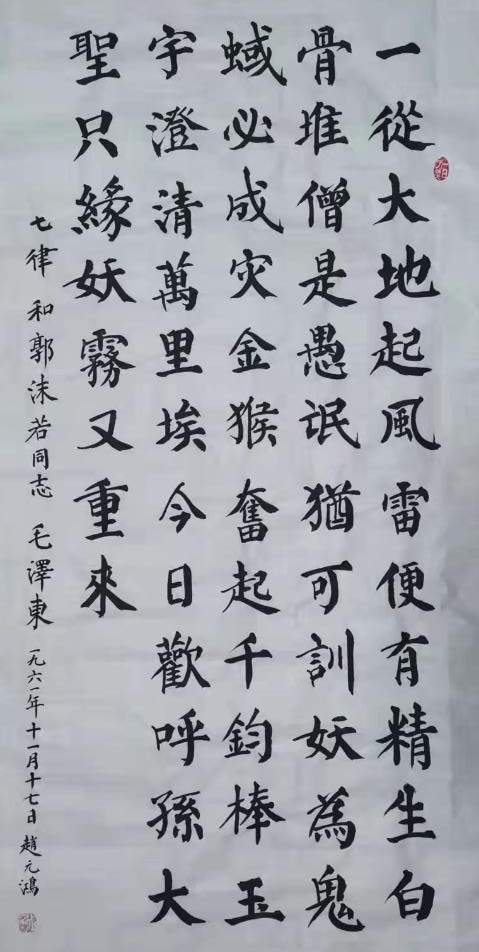 一從大地起風雷便有精生白
骨堆僧是愚氓猶可訓妖為鬼
蜮必成灾金猴奮起千鈞棒玉
宇澄清萬里埃今日歡呼孫大
聖只緣妖霧又重來
七律 和郭沫若同志 毛澤東 一九六一年十一月十七日 趙元鴻